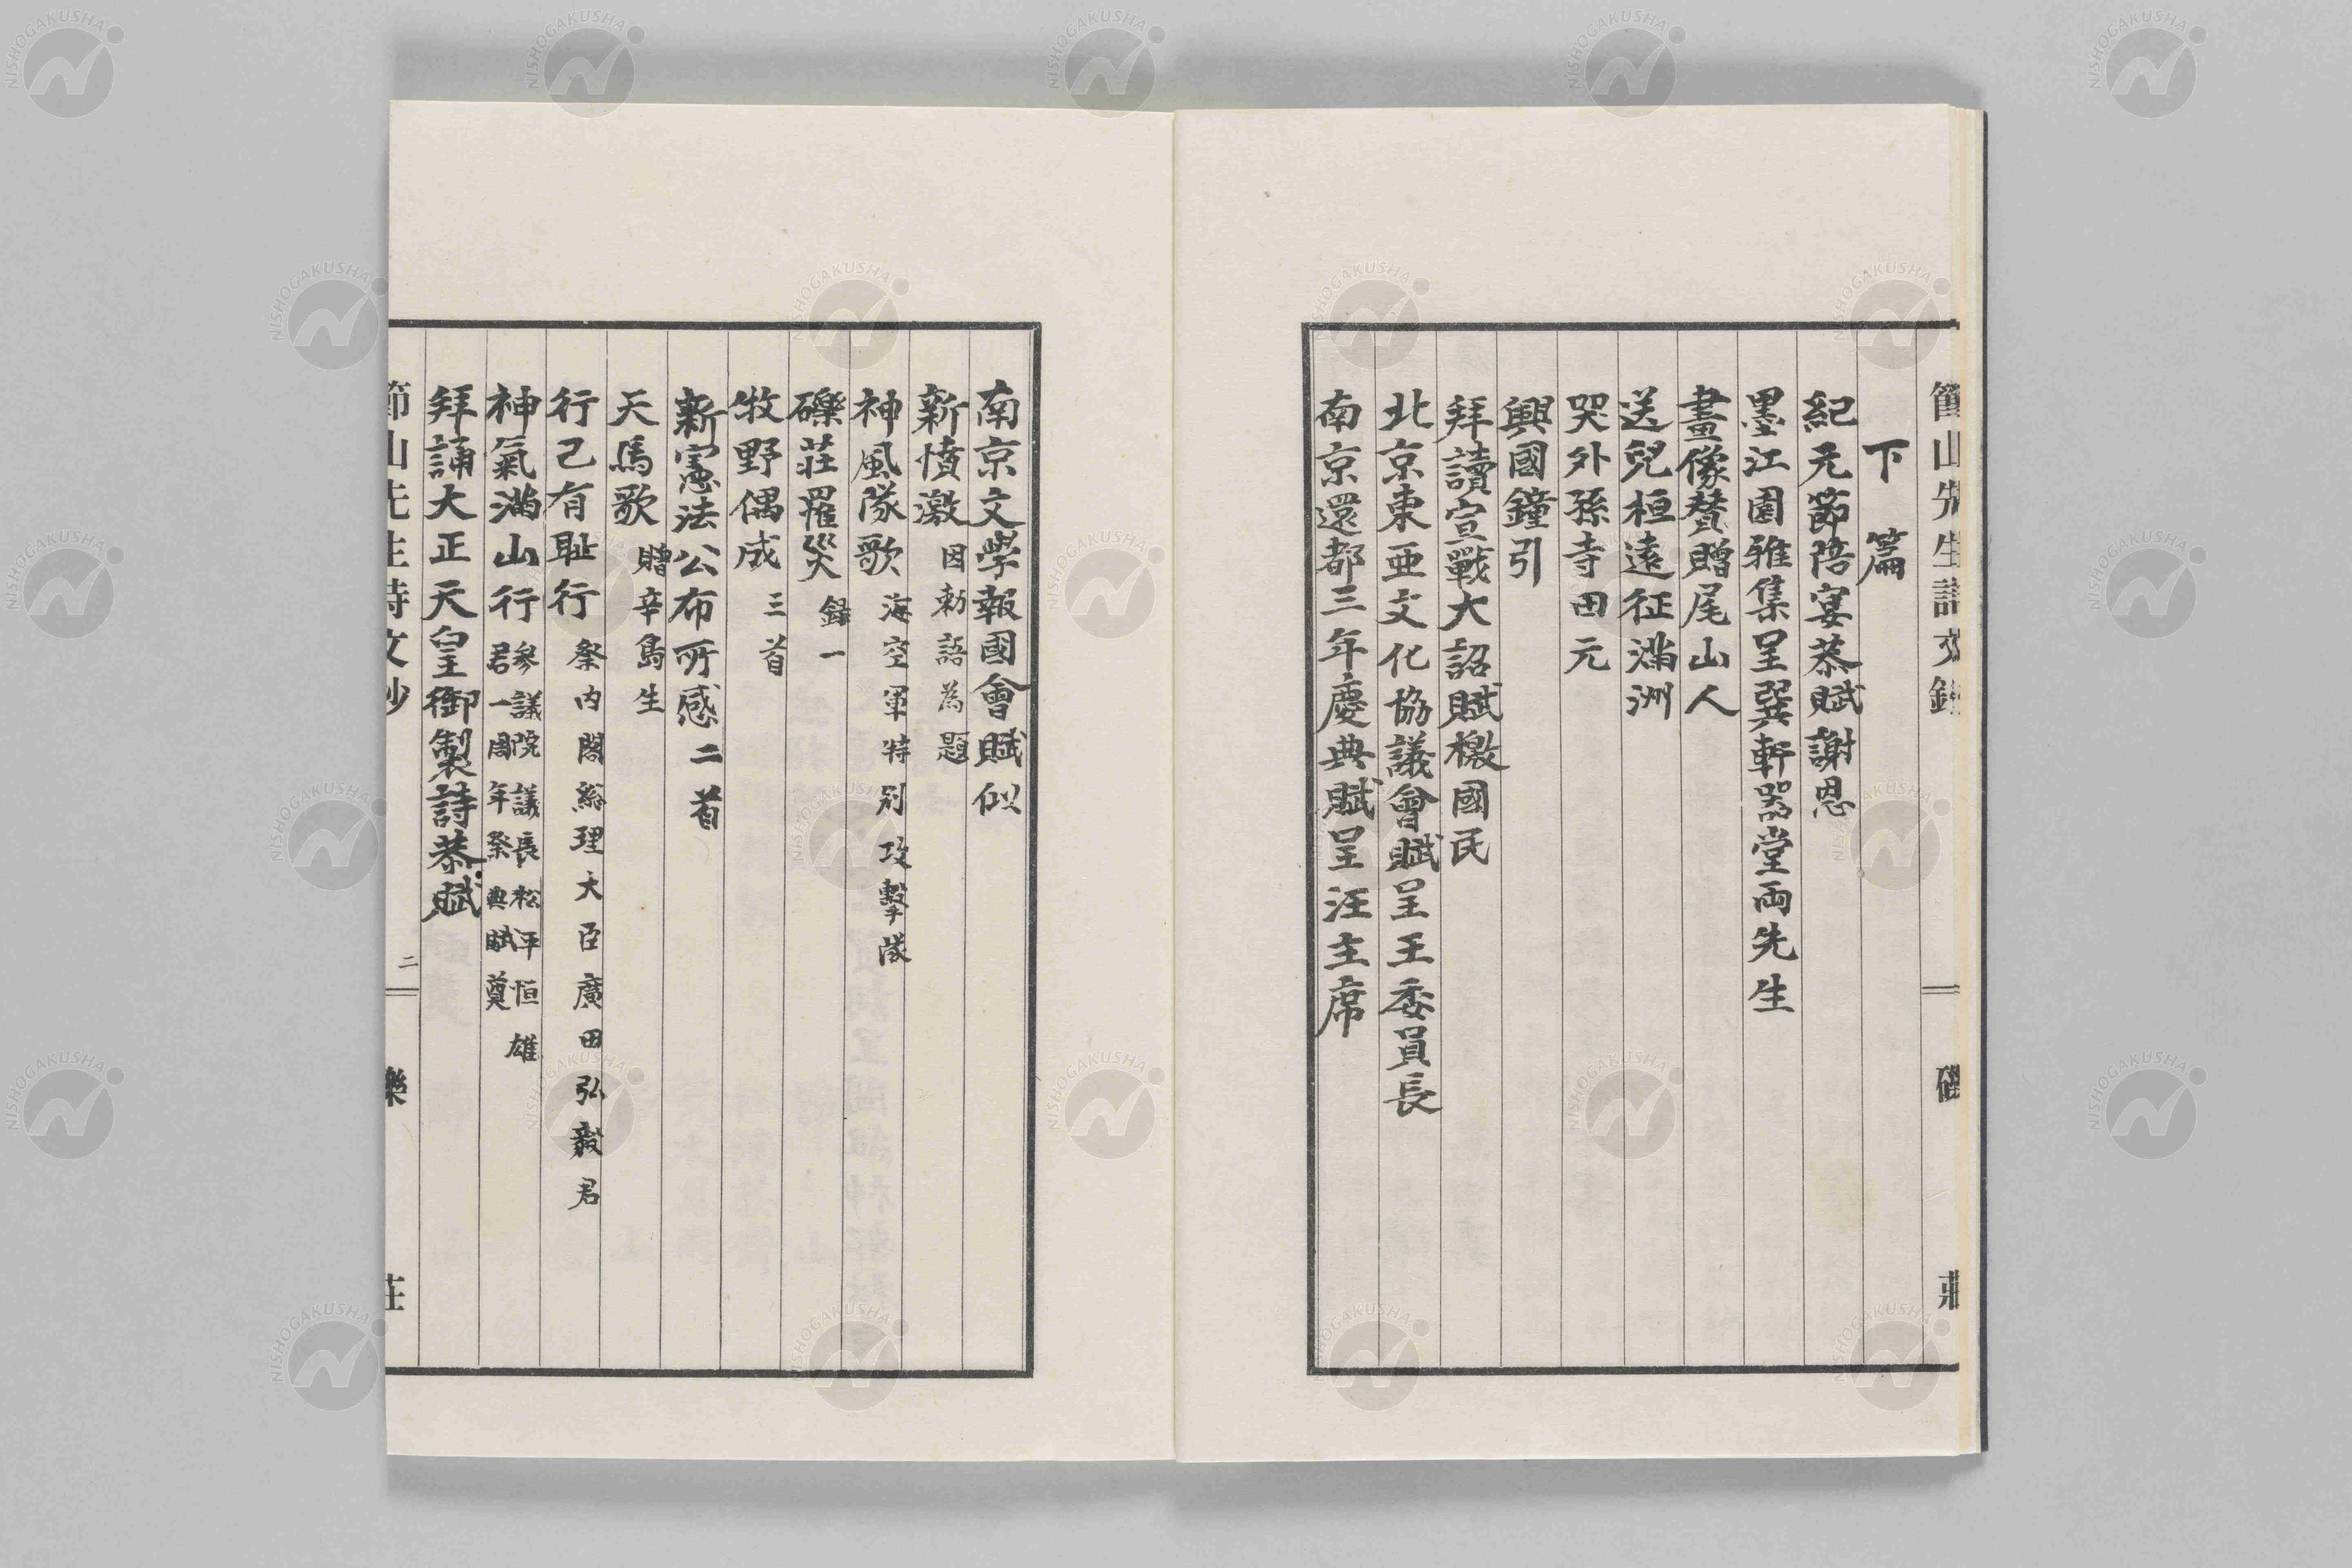 節山先生詩文鈔
礫
莊
下篇
紀元節陪宴恭賦謝恩
墨江園雅集呈巽軒器堂両先生
畫像賛贈尾山人
送兒桓遠征滿洲
哭外孫寺田元
興國鐘引
拜讀宣戰大詔賦檄國民
北京東亜文化協議會賦呈王委員長
南京還都三年慶典賦呈汪主席
南京文學報國會賦似
新憤激 因勅語為題
神風隊歌 海空軍特別攻擊隊
礫莊罹災 錄一
牧野偶成 三首
新憲法公布所感二首
天馬歌 贈辛島生
行己有耻行 祭内閣総理大臣廣田弘毅君
神氣滿山行 參議院議長松平恒雄
君一周年祭典賦奠
拜誦大正天皇御製詩恭賦
節山先生詩文鈔
二
礫
莊
NISHOGAKUSHA